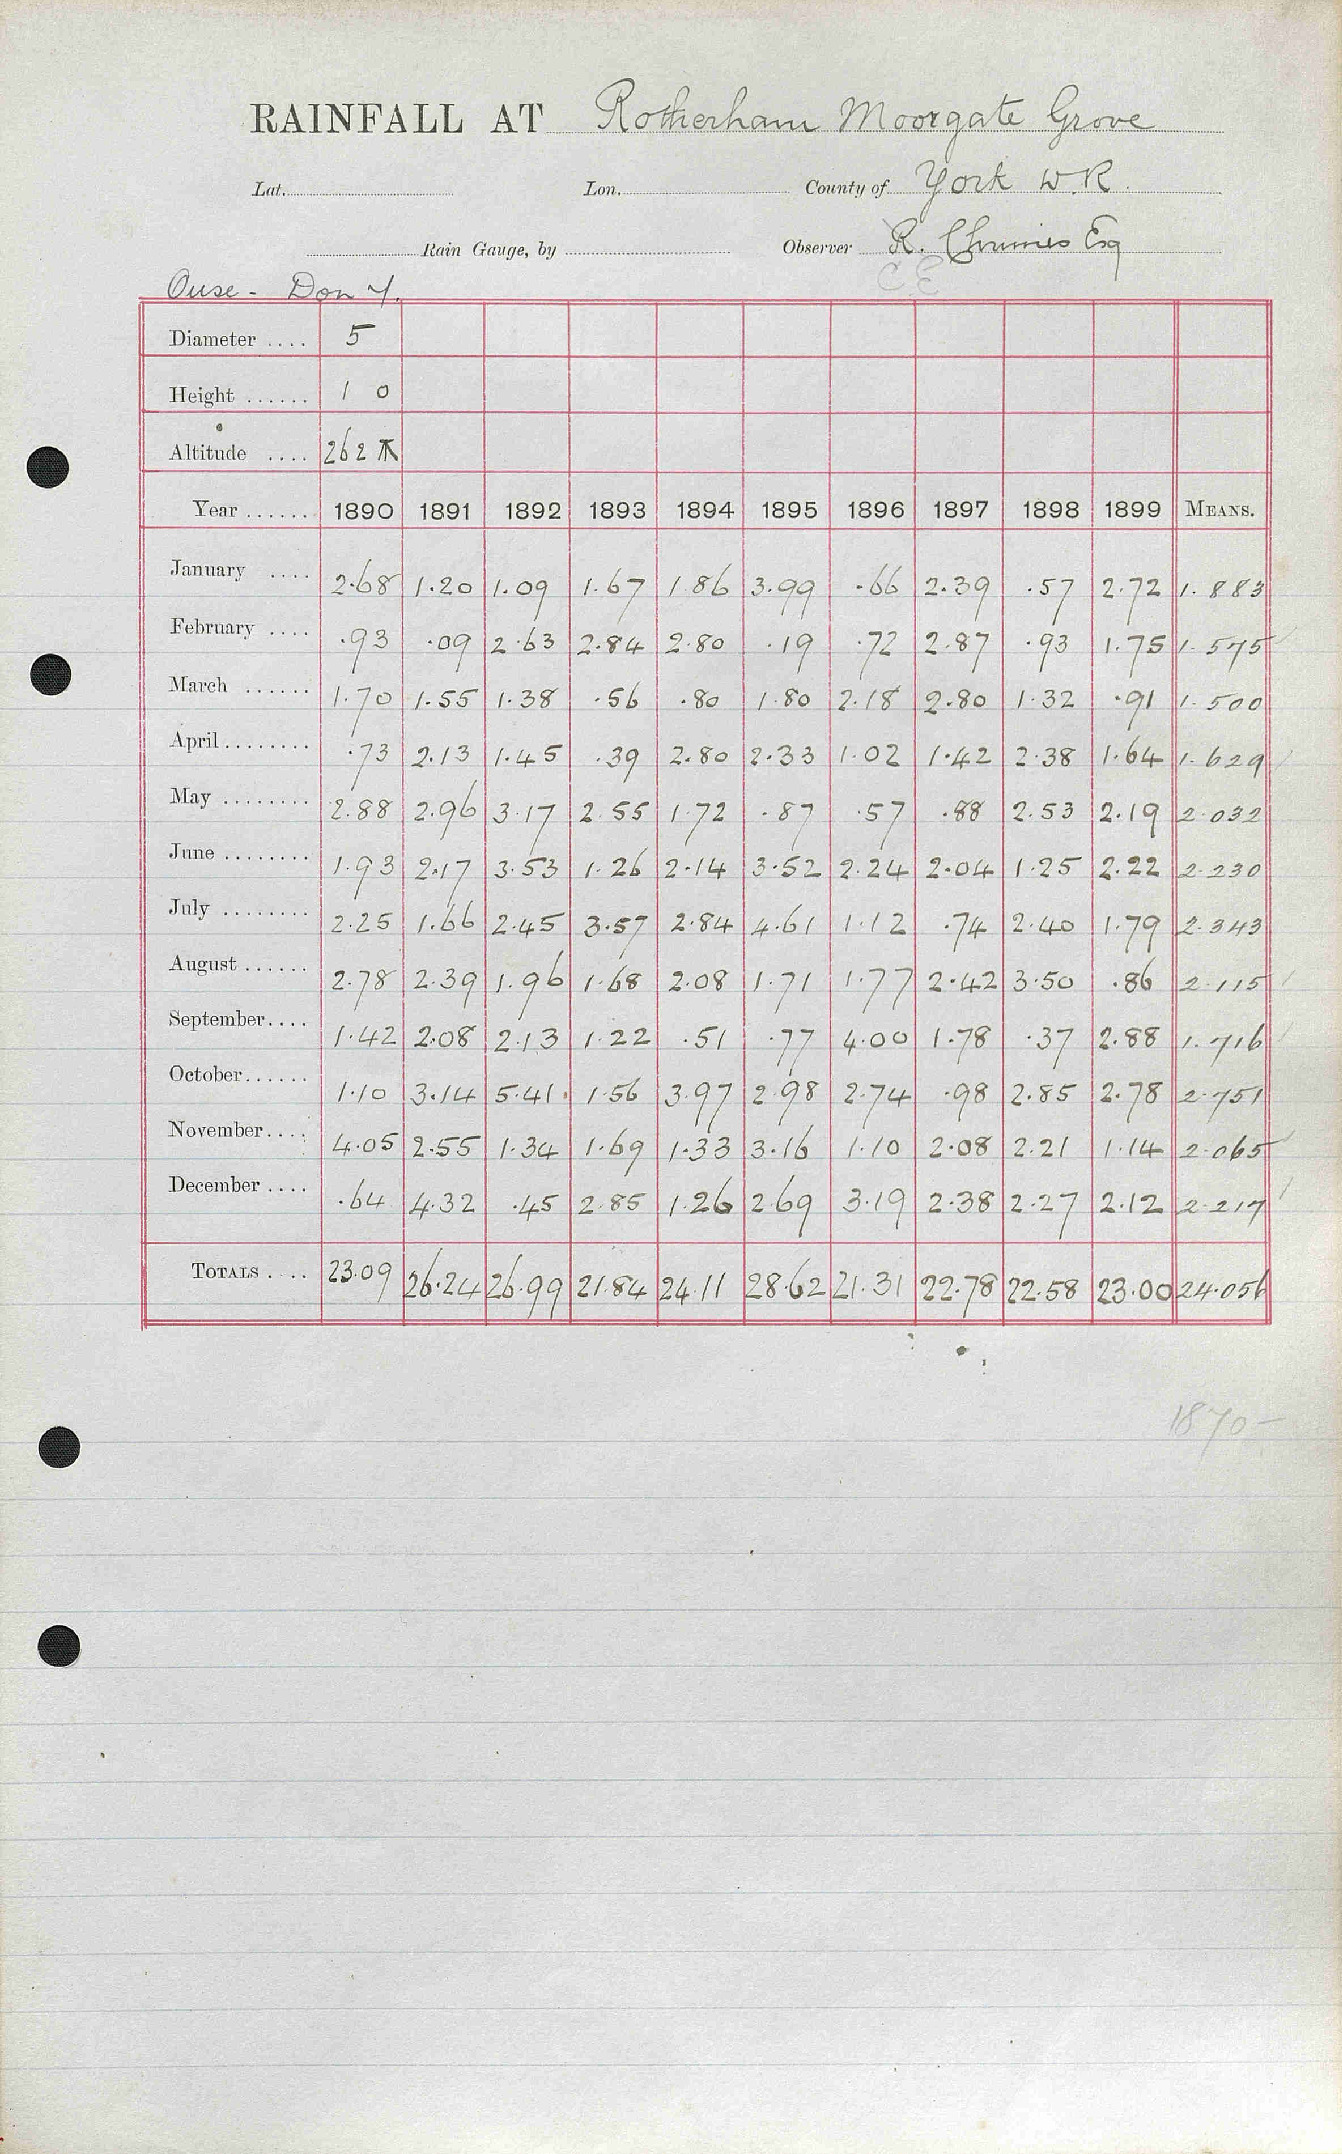 RAINFALL AT Rotherham Moorgate Grove
Lat. Lon. County of York W.R.
Rain Gauge, by Observer R. Chrimes Esq
C E
Ouse - Don Y.
Diameter .... 5
Height ...... 1 0
Altitude .... 262
Year ...... 1890 1891 1892 1893 1894 1895 1896 1897 1898 1899 MEANS.
January .... 2.68 1.20 1.09 1.67 1.86 3.99 .66 2.39 .57 2.72 1.883
February .... .93 .09 2.63 2.84 2.80 .19 .72 2.87 .93 1.75 1.575
March ...... 1.70 1.55 1.38 .56 .80 1.80 2.18 2.80 1.32 .91 1.500
April ........ .73 2.13 1.45 .39 2.80 2.33 1.02 1.42 2.38 1.64 1.629
May ........ 2.88 2.96 3.17 2.55 1.72 .87 .57 .88 2.53 2.19 2.032
June ........ 1.93 2.17 3.53 1.26 2.14 3.52 2.24 2.04 1.25 2.22 2.230
July ........ 2.25 1.66 2.45 3.57 2.84 4.61 1.12 .74 2.40 1.79 2.343
August ...... 2.78 2.39 1.96 1.68 2.08 1.71 1.77 2.42 3.50 .86 2.115
September.... 1.42 2.08 2.13 1.22 .51 .77 4.00 1.78 .37 2.88 1.716
October...... 1.10 3.14 5.41 1.56 3.97 2.98 2.74 .98 2.85 2.78 2.751
November.... 4.05 2.55 1.34 1.69 1.33 3.16 1.10 2.08 2.21 1.14 2.065
December .... .64 4.32 .45 2.85 1.26 2.69 3.19 2.38 2.27 2.12 2.217
TOTALS .... 23.09 26.24 26.99 21.84 24.11 28.62 21.31 22.78 22.58 23.00 24.056
1870-